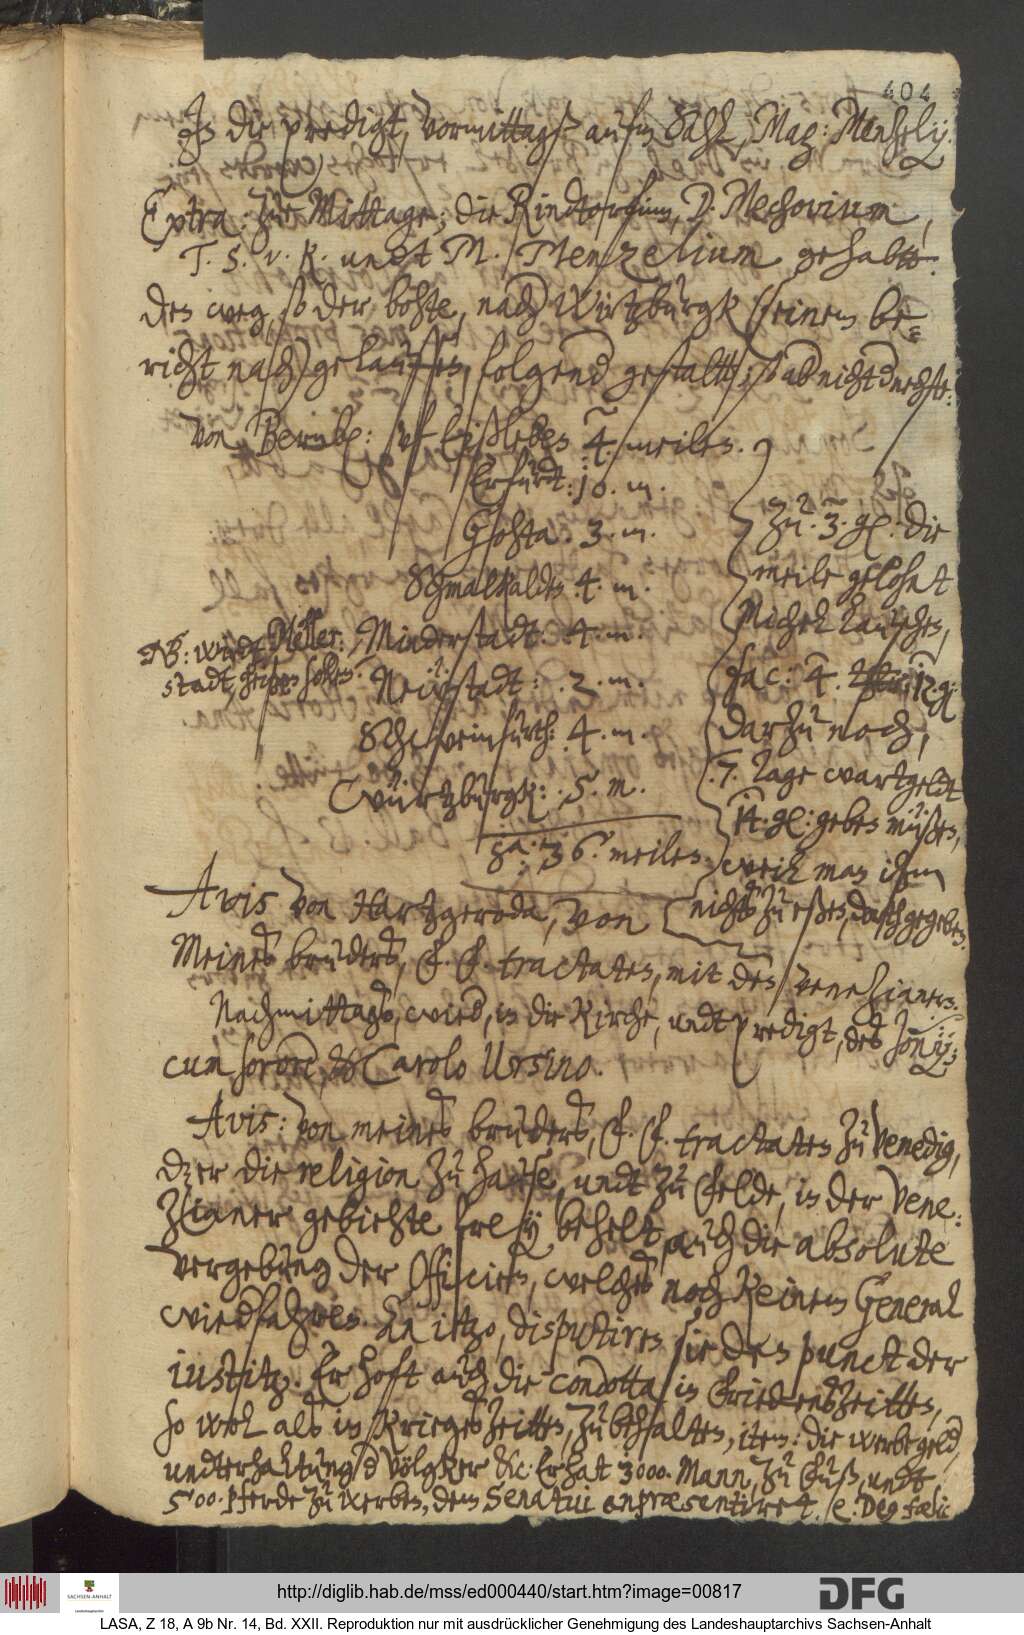 404
In die predigt, vormittagß aufm Sahl, Mag: Menzely.
Extra: zur Mittage; die Rindtorfinn, D. Mechovium,
T. S. v. R. undt M. Menzelium gehabtt.
Den weg, so der bohte, nach Wirtzburgk (seinem be-
richt nach) gelauffen, folgend gestaltt: ist ab nicht d nechste:
von Bernb: uf Eißleben 4. meilen.
Erfurdt: 10. m.
Gohta: 3. m.
Schmalkalden: 4. m.
NB: wirdt Meller: Minderstadt: 4. m.
stadt, heißen sollen. Neüstadt: 2. m.
Schweinfurth: 4. m.
Würtzburgk: 5. m.
Sa: 36. meilen.
Zu 3. gl: die
meile gelohnt
Michel Lauschen,
fac: 4. 12. gl:
darzu noch,
7. Tage wartgeldt
14. gl: geben müßen,
weil man ihm
nichts zu eßen, doch gegeben.
Avis von Hartzgeroda, von
Meines bruders, F. F. tractaten, mit den Venezianern.
Nachmittags, wied, in die Kirche, undt predigt, des Jonij:
cum sorore, & Carolo Ursino.
Avis: von meines bruders, F. F. tractaten zu Venedig,
der die religion zu hause, undt zu felde, in der Vene-
zianer gebiehte frey behelt, auch die absolute
vergebung der Officien, welches noch keinem General
wiedfahren. An itzo, disputiren sie den punct der
iustitz. Er hoft auch die condotta, in friedenszeitten,
so wol als in Kriegeszeitten, zu behalten, item: die werbegeld,
undterhaltung d völgker &c. Er hat 3000. Mann, zu fuß, undt
500. pferde zu werben, dem Senatui anpræsentiret. /
http://diglib.hab.de/mss/ed000440/start.htm?image=00817
SACHSEN-ANHALT
DFG
LASA, Z 18, A 9b Nr. 14, Bd. XXII. Reproduktion nur mit ausdrücklicher Genehmigung des Landeshauptarchivs Sachsen-Anhalt